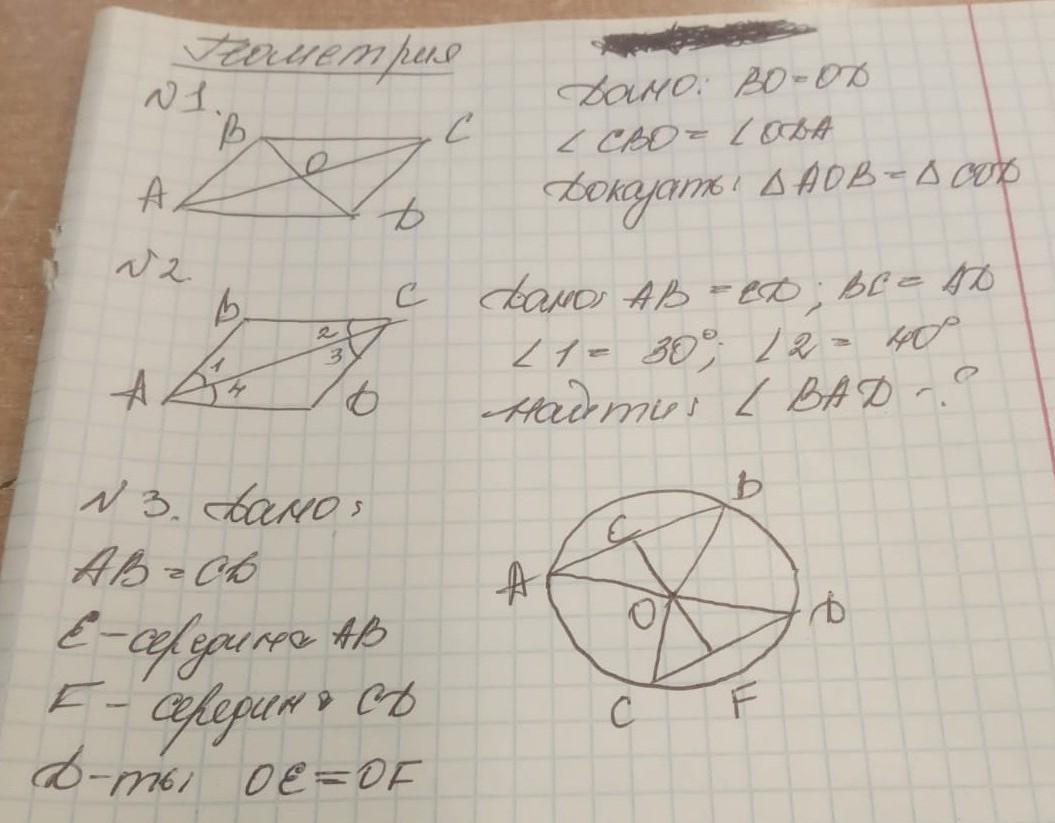 Геометрия
N1.
B
C
O
A
D
Дано: BO=OD
∠CBO = ∠ODA
Доказать: ΔAOB = ΔCOD
N2
B
C
2
3
1
4
A
D
Дано: AB = CD; BC = AD
∠1 = 30°; ∠2 = 40°
Найти: ∠BAD -?
N3. Дано:
AB = CD
E - середина AB
F - середина CD
Д-ть: OE = OF
B
E
A
O
D
C
F